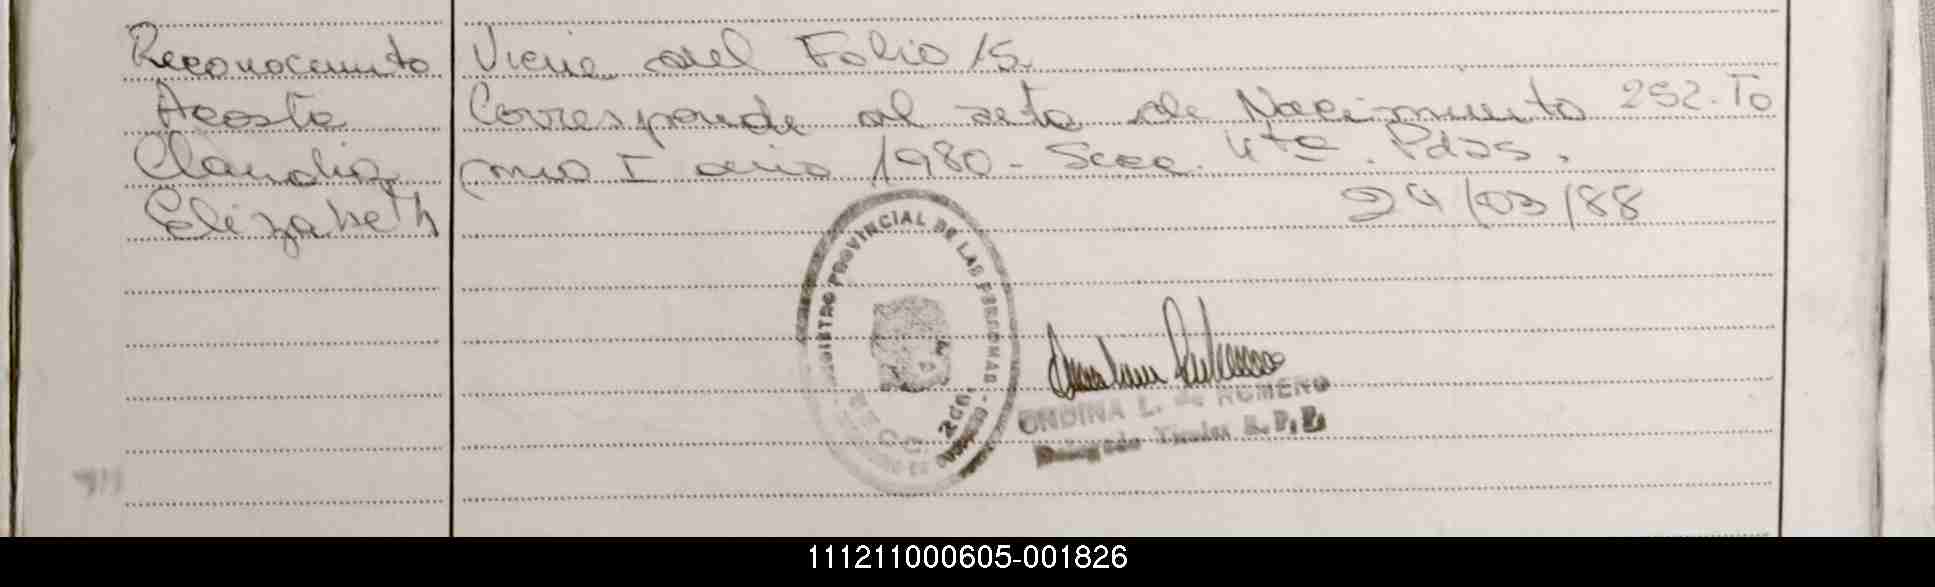 Reconocimiento
Acosta
Claudia
Elizabeth
Viene del Folio 15.
Corresponde al acta de Nacimiento 252. To
mo I año 1980 - Secc. 4ta. Pdas.
24/03/88
REGISTRO PROVINCIAL DE LAS PERSONAS
ONDINA L. de ROMERO
Delegado Titular R.P.P.
111211000605-001826